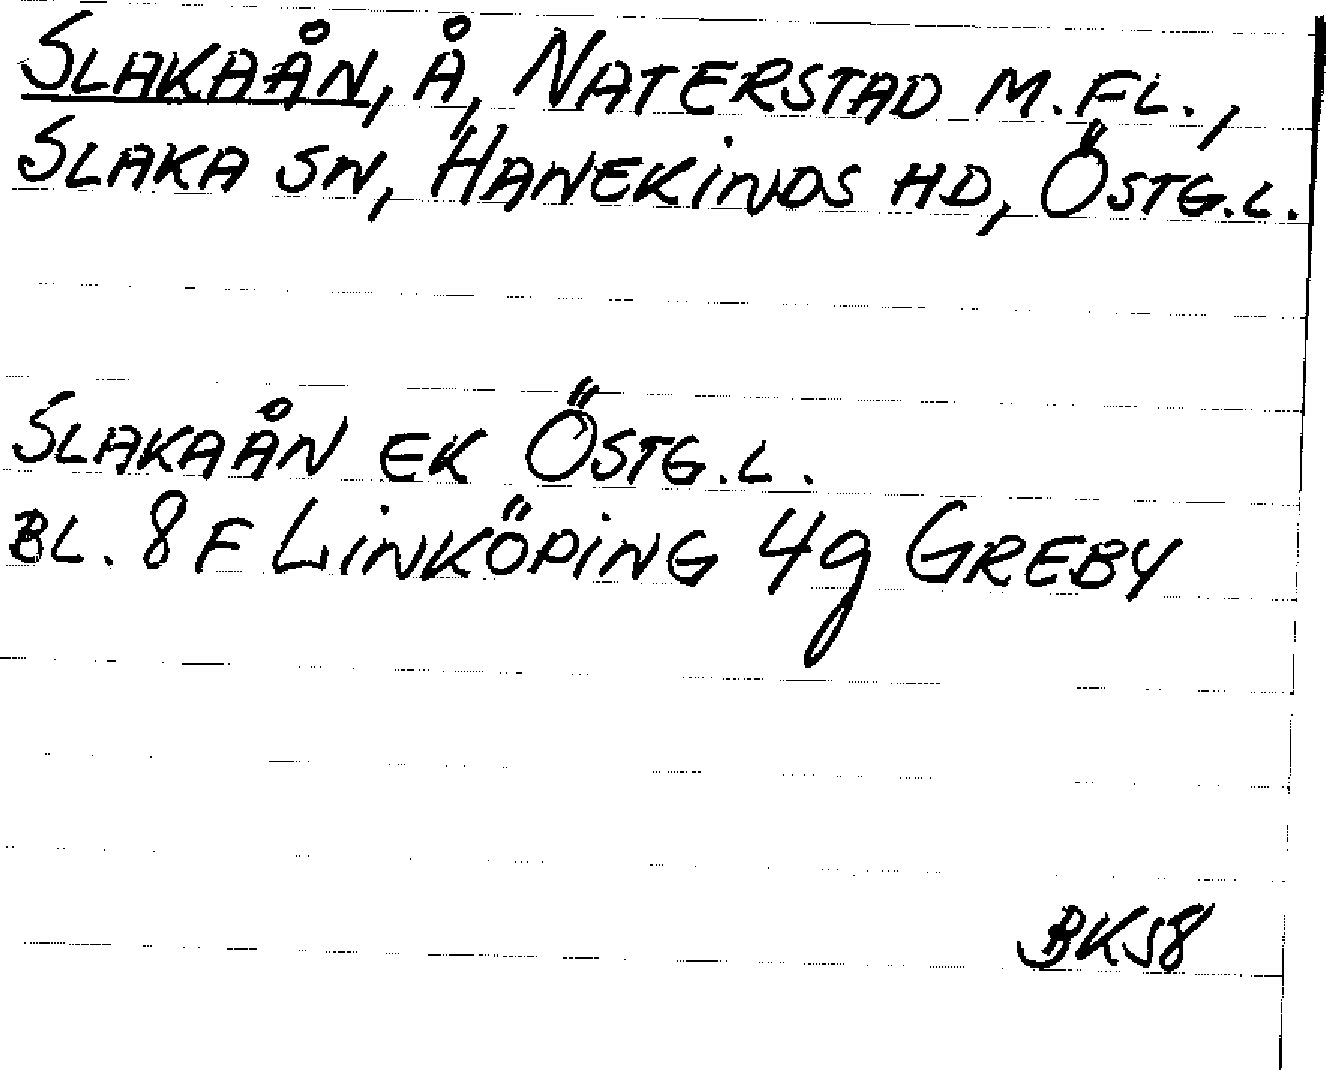 SLAKAÅN, Å, NATERSTAD M.FL.,
SLAKA SN, HANEKINDS HD, ÖSTG.L.
SLAKAÅN EK ÖSTG.L.
BL. 8F LINKÖPING 4g GREBY
BK58